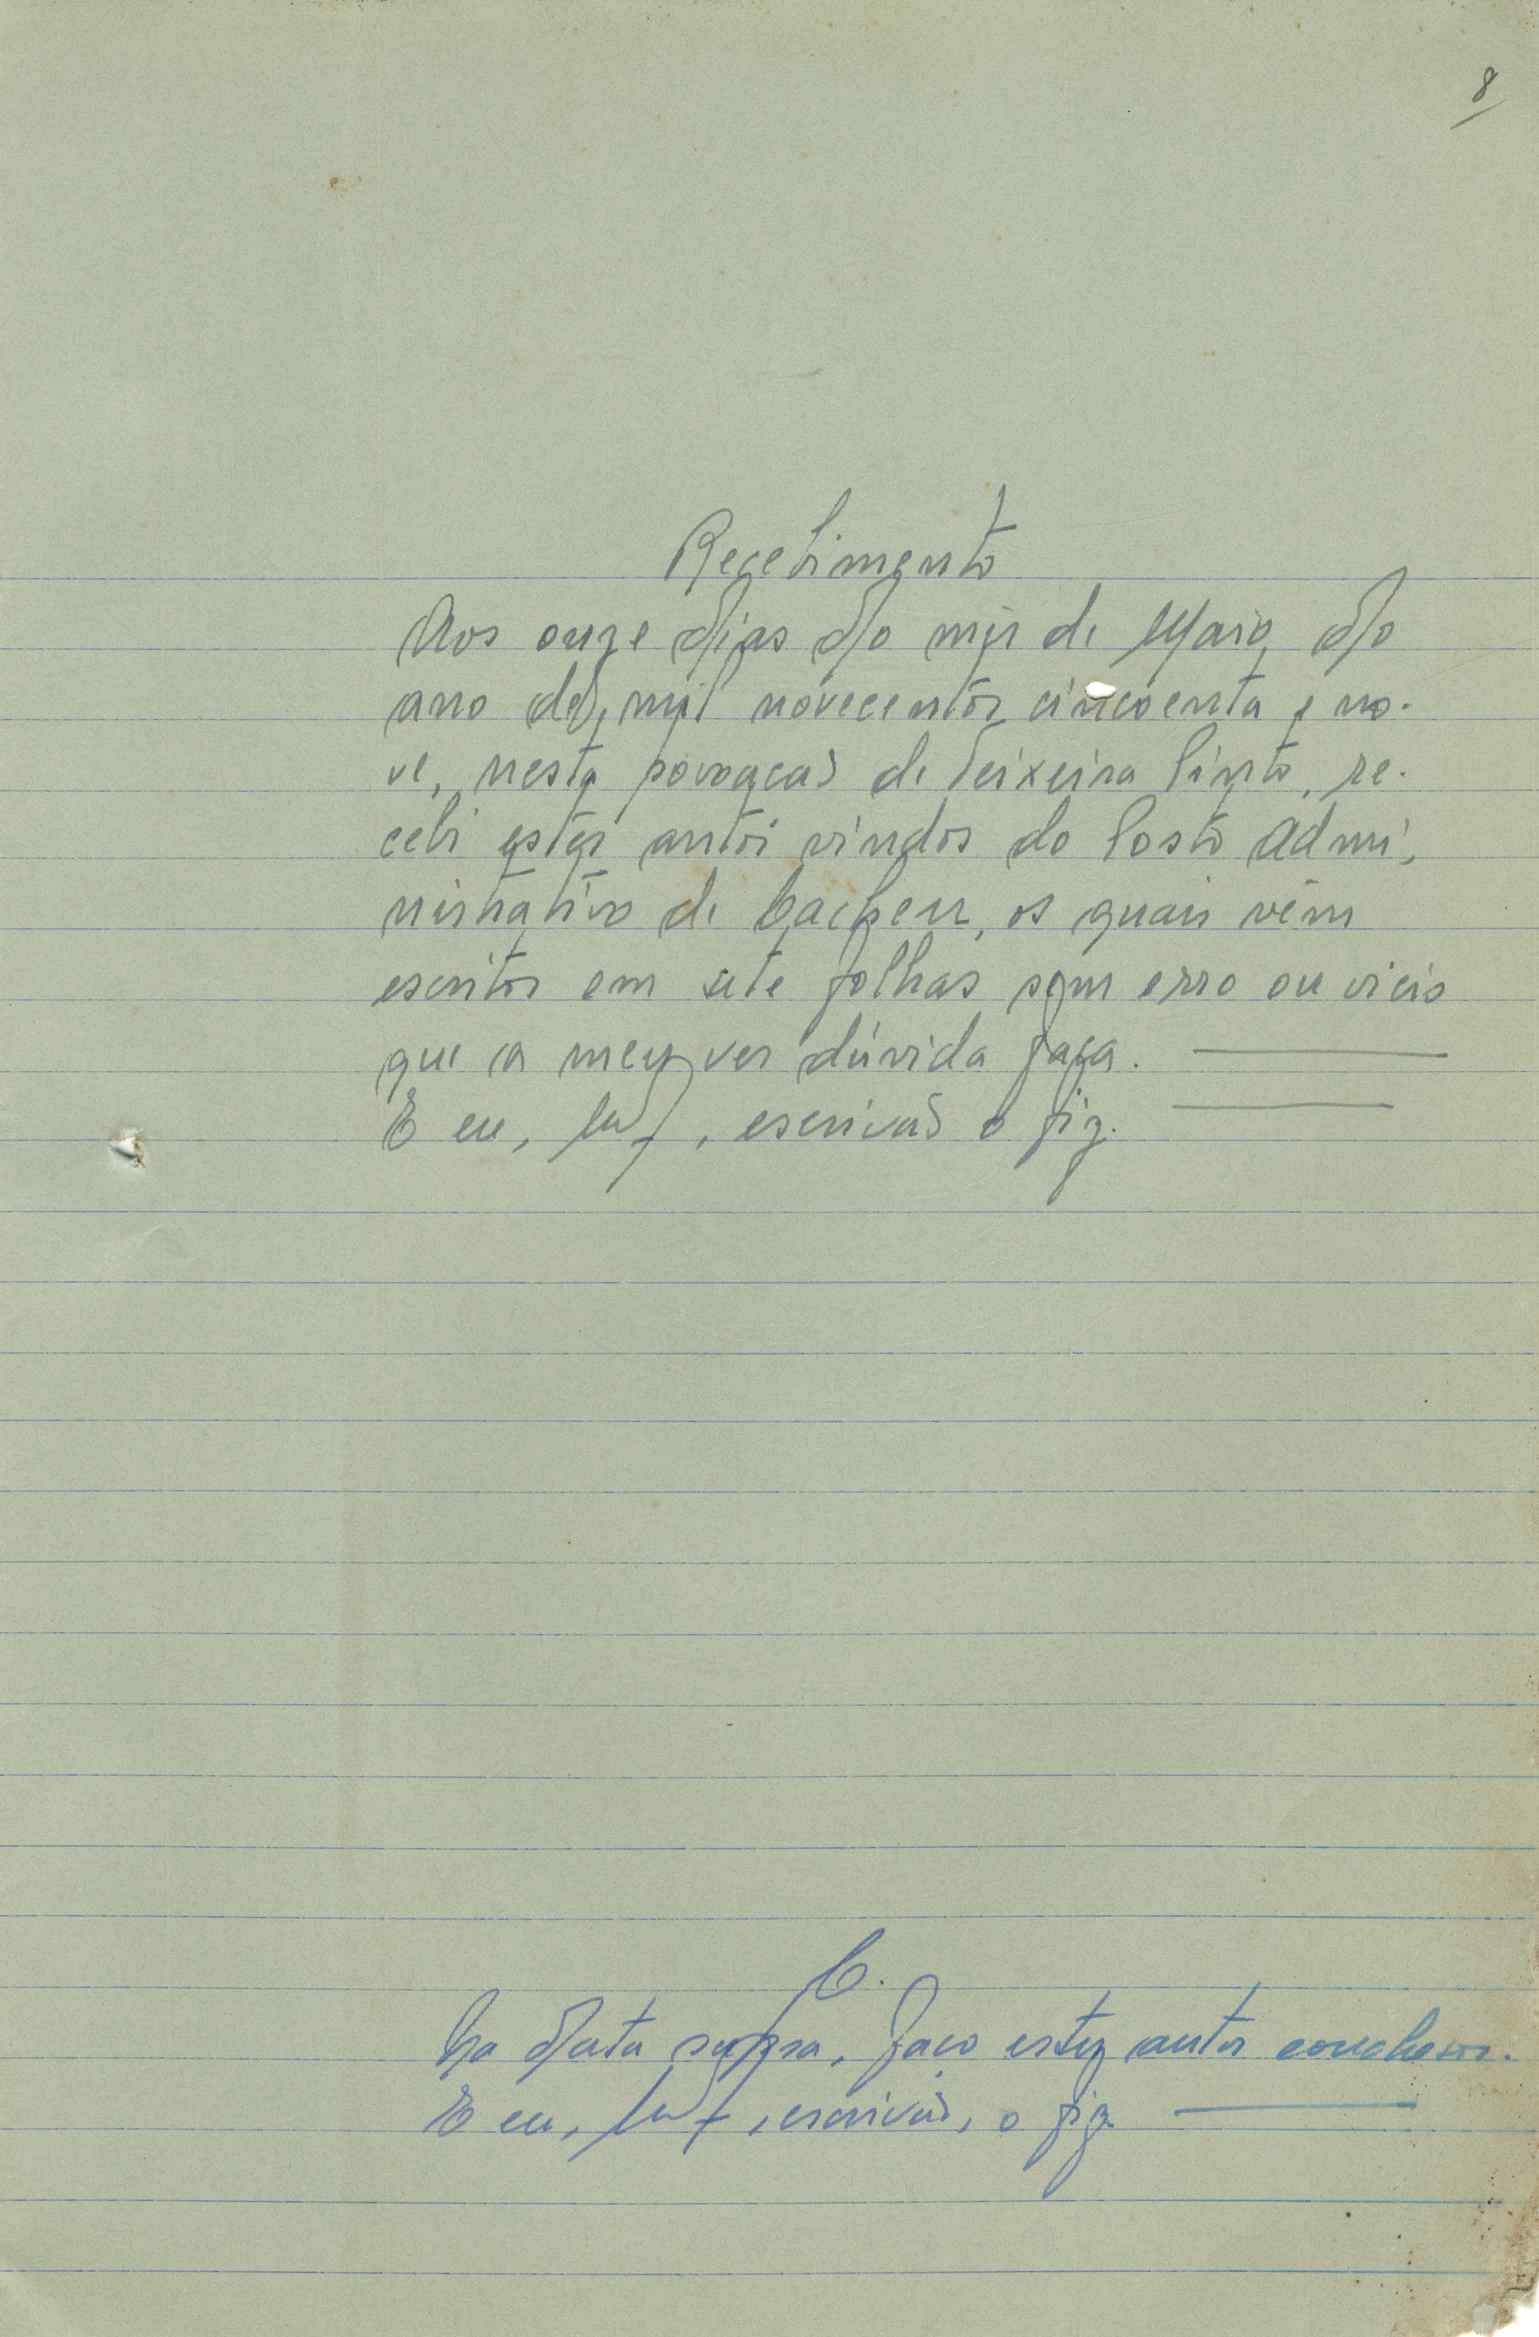 8
Recebimento
Aos onze dias do mês de Maio do
ano de mil novecentos cincoenta e no-
ve, nesta povoação de Teixeira Pinto, re-
cebi estes autos vindos do Posto Admi-
nistrativo de Cacheu, os quais vêm
escritos em sete folhas sem erro ou vicio
que a meu ver dúvida faça.
E eu, , escrivão o fiz.
C.
Na data supra, faço estes autos conclusos.
E eu, , escrivão, o fiz